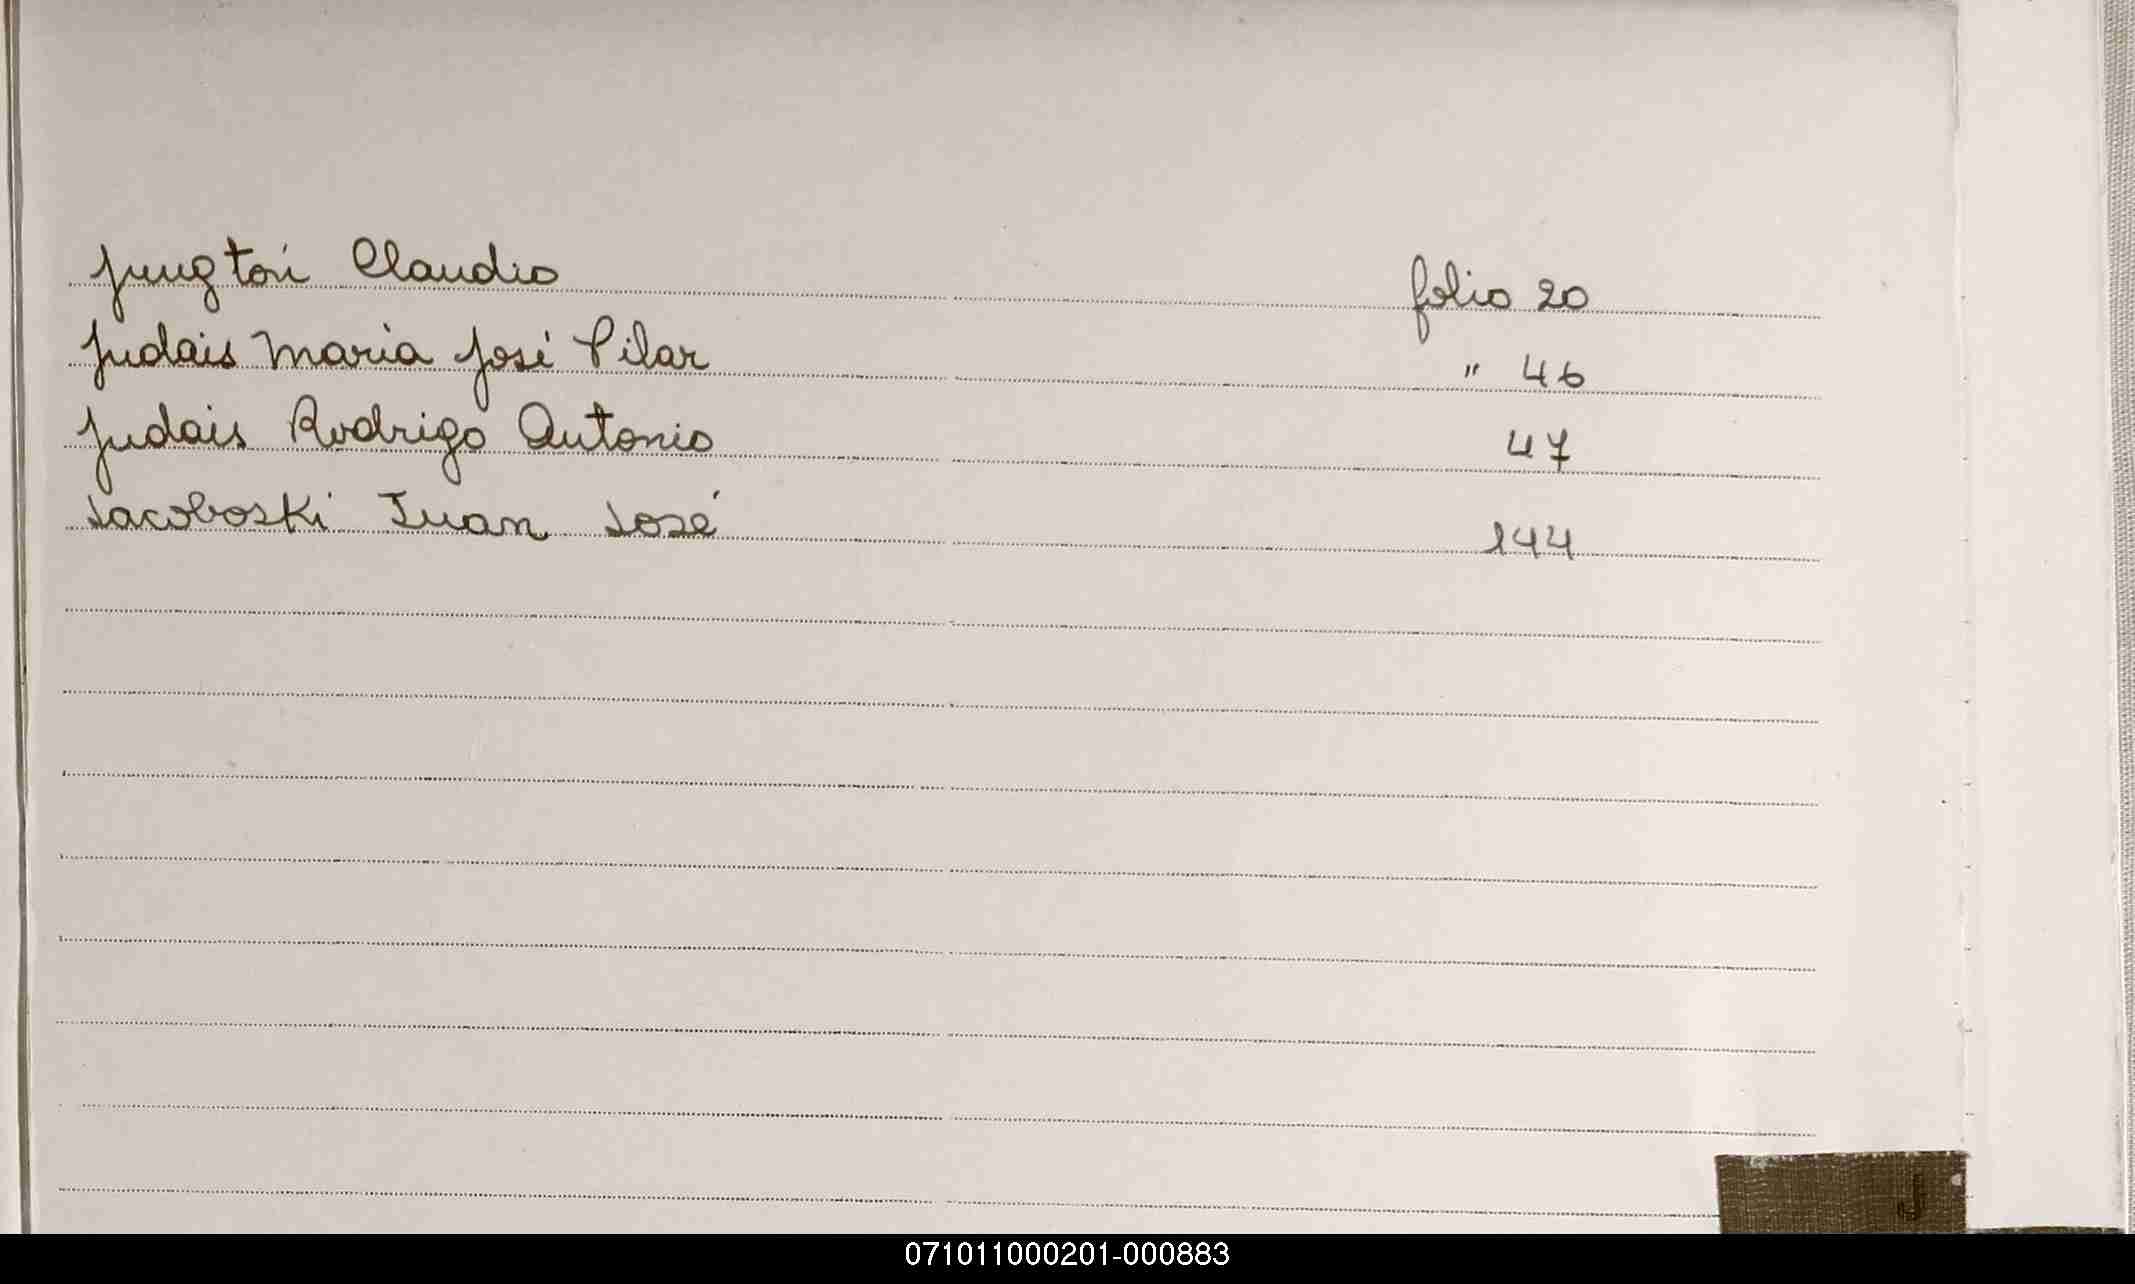 Jungtón Claudio folio 20
Judais Maria José Pilar " 46
Judais Rodrigo Antonio 47
Jacoboski Juan José 144
J
071011000201-000883